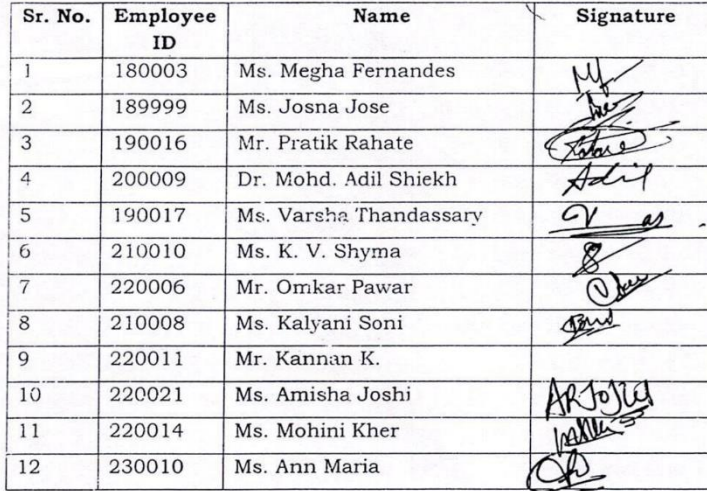 Sr. No. Employee ID Name Signature
1 180003 Ms. Megha Fernandes
2 189999 Ms. Josna Jose
3 190016 Mr. Pratik Rahate
4 200009 Dr. Mohd. Adil Shiekh Adil
5 190017 Ms. Varsha Thandassary
6 210010 Ms. K. V. Shyma
7 220006 Mr. Omkar Pawar
8 210008 Ms. Kalyani Soni
9 220011 Mr. Kannan K.
10 220021 Ms. Amisha Joshi
11 220014 Ms. Mohini Kher
12 230010 Ms. Ann Maria